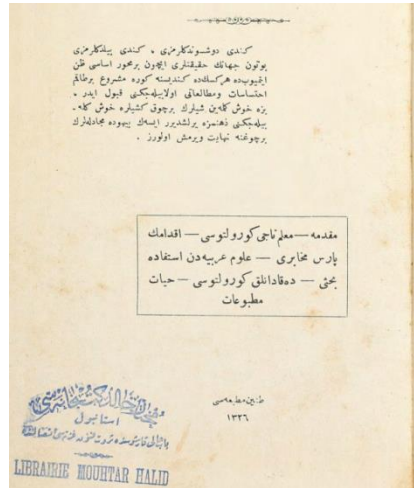 كندى دوشوندكلرمزى ، كندى بيلدكلرمزى
بوتون جهانك حقيقتلرى ايچون برمحور اساسى ظن
ايتميوب‌ده هركسك‌ده كنديسنه كوره مشروع برطاقم
احتساسات ومطالعاتى اولابيله‌جكنى قبول ايدر ،
بزه خوش كلمه‌ين شيلرك برچوق كشيلره خوش كله‌
بيله‌جكنى ذهنمزه يرلشديرر ايسه‌ك بيهوده مجادله‌لرك
برچوغنه نهايت ويرمش اولورز .
مقدمه — معلم ناجى كورولتوسى — اقدامك
پارس مخابرى — علوم عربيه‌دن استفاده
بحثى — ده‌قادانلق كورولتوسى — حيات
مطبوعات
طنين مطبعه‌سى
١٣٢٦
مختار خالد كتبخانه‌سى
استانبول
LIBRAIRIE MOUHTAR HALID